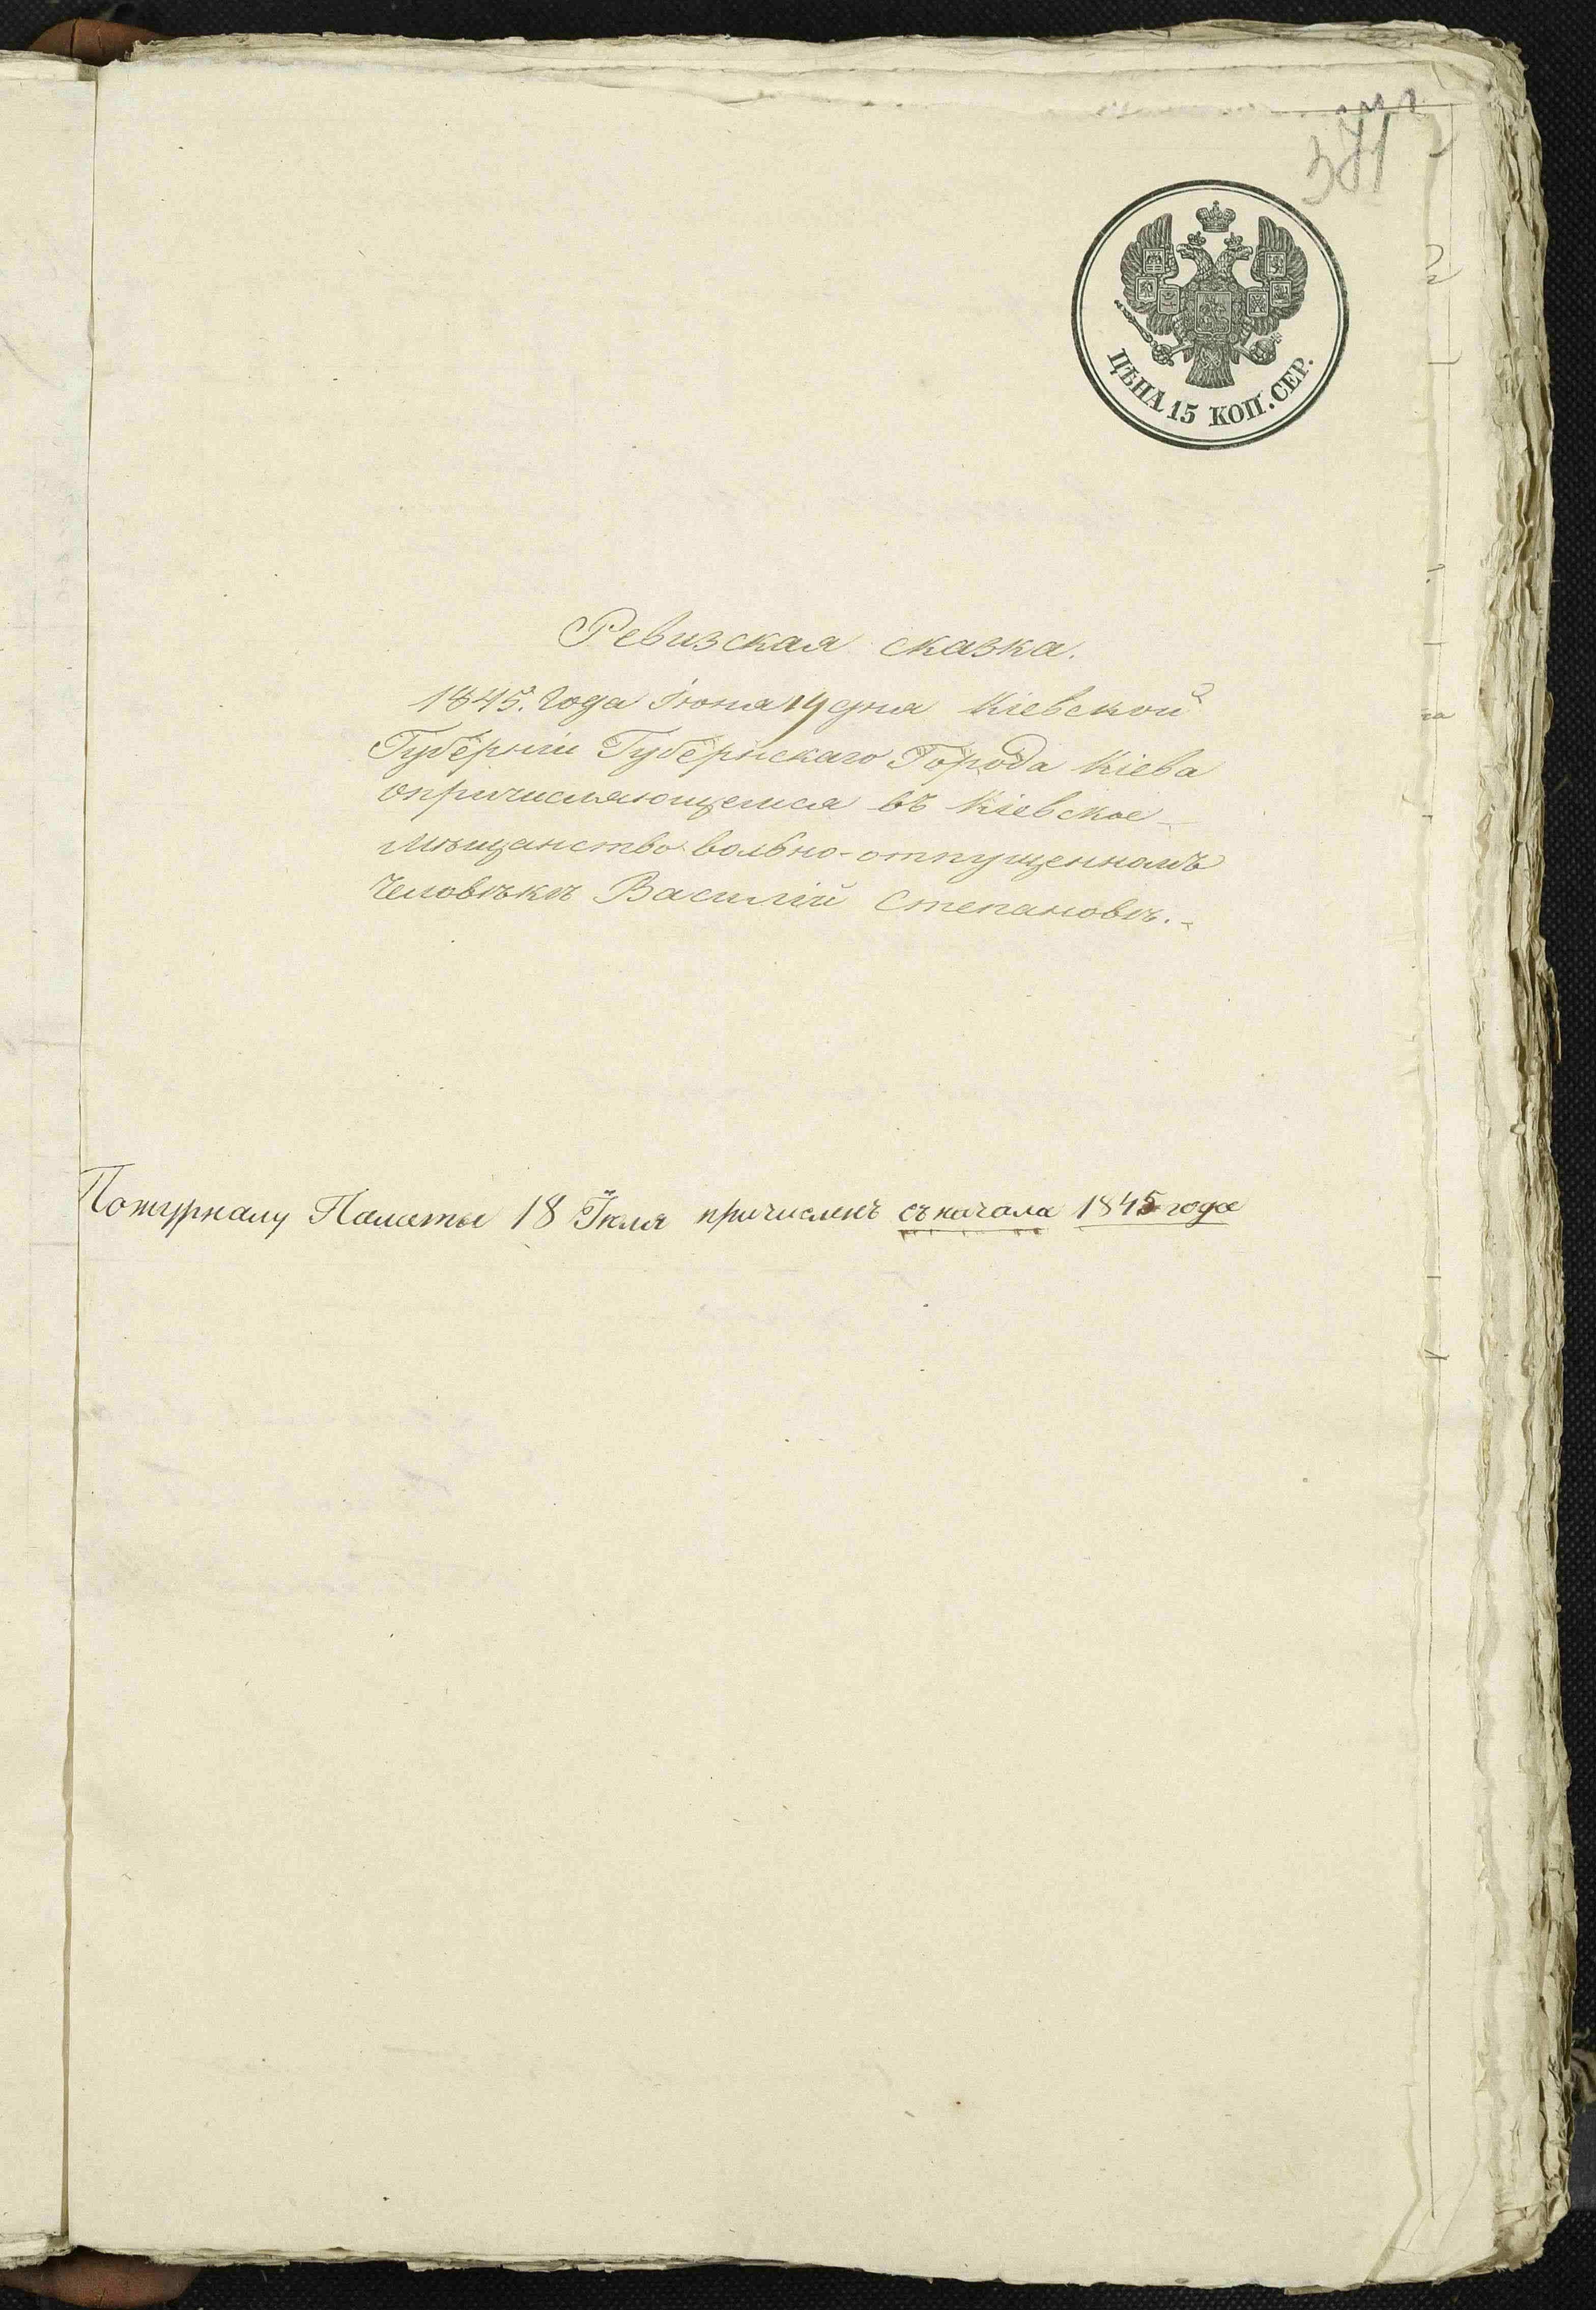 ЦѢНА 15 КОП. СЕР.
Ревизская сказка.
1845. Года Іюня 14 дня Кіевской
Губерніи Губернскаго Города Кіева
опричисляющемся въ Кіевское
мѣщанство вольно-отпущенномъ
Человѣкѣ Василій Степановѣ.
Пожурналу Палаты 18 Іюля причисленъ съ начала 1845 года